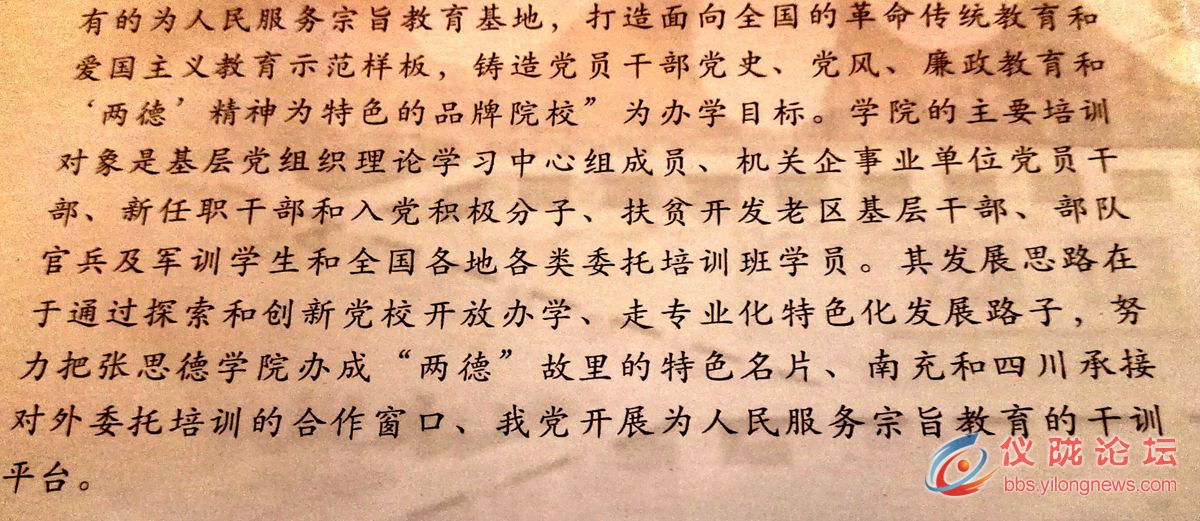 有的为人民服务宗旨教育基地，打造面向全国的革命传统教育和
爱国主义教育示范样板，铸造党员干部党史、党风、廉政教育和
‘两德’精神为特色的品牌院校”为办学目标。学院的主要培训
对象是基层党组织理论学习中心组成员、机关企事业单位党员干
部、新任职干部和入党积极分子、扶贫开发老区基层干部、部队
官兵及军训学生和全国各地各类委托培训班学员。其发展思路在
于通过探索和创新党校开放办学、走专业化特色化发展路子，努
力把张思德学院办成“两德”故里的特色名片、南充和四川承接
对外委托培训的合作窗口、我党开展为人民服务宗旨教育的干训
平台。
仪陇论坛
bbs.yilongnews.com